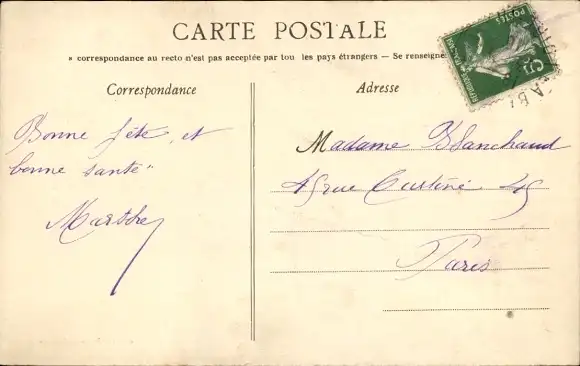 CARTE POSTALE
a correspondance au recto n'est pas acceptée par tou les pays étrangers — Se renseigne
Correspondance
Adresse
Bonne fête et
bonne santé
Marthe
Madame Blanchaud
45 rue Custine 45
Paris
POSTES
5